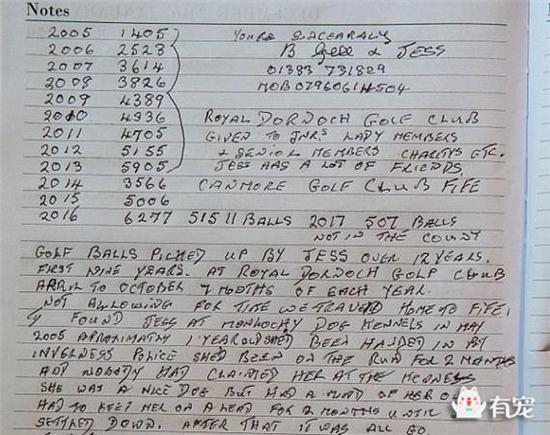 Notes
2005 1405 YOURS SINCERALY
2006 2523 B & JESS
2007 3614 01383 731829
2008 3826 MOB 07960614504
2009 4389
2010 4936 ROYAL DORNOCH GOLF CLUB
2011 4705 GIVEN TO JNRS LADY MEMBERS
2012 5155 + SENIOR MEMBERS CHARITYS ETC.
2013 5905 JESS HAS A LOT OF FRIENDS
2014 3566 CANMORE GOLF CLUB FIFE
2015 5006
2016 6277 51511 BALLS 2017 507 BALLS
NOT IN THE COUNT
GOLF BALLS PICKED UP BY JESS OVER 12 YEARS.
FIRST NINE YEARS. AT ROYAL DORNOCH GOLF CLUB
APRIL TO OCTOBER 7 MONTHS OF EACH YEAR.
NOT ALLOWING FOR TIME WE TRAVED HOME TO FIFE,
I FOUND JESS AT MUNLOCHY DOG KENNELS IN MAY
2005 APROXIMATLY 1 YEAR OLD SHED BEEN HANDED IN BY
INVERNESS POLICE SHED BEEN ON THE RUN FOR 2 MONTHS
NOBODY HAD CLAIMED HER AT THE KENNELS
SHE WAS A NICE DOG BUT HAD A MIND OF HER
HAD TO KEEP HER ON A LEAD FOR 2 MONTHS UNTIL
SETTLED DOWN. AFTER THAT IT WAS ALL GO
有宠